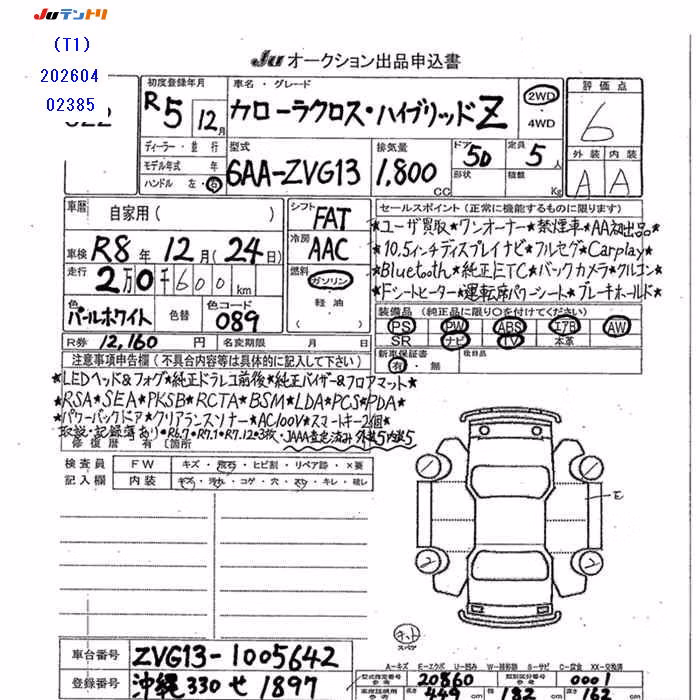 Juテントリ
(T1)
202604
02385
Ju オークション出品申込書
初度登録年月
R5 12月
車名・グレード
カローラクロス・ハイブリッド Z
2WD
・4WD
評価点
6
外装 内装
A A
ディーラー・並行
モデル年式 年
ハンドル 左・右
型式
6AA-ZVG13
排気量
1,800 CC
ドア
5D
形状
定員
5人
積載
Kg
車歴
自家用( )
車検 R8年12月(24日)
走行 2万0千600km
色
パールホワイト
色替
色コード
089
R券 12,160 名変期限 月 日
シフト FAT
冷房 AAC
燃料
ガソリン
・
軽油
( )
セールスポイント(正常に機能するものに限ります)
★ユーザ買取★ワンオーナー★禁煙車★AA初出品★
★10.5インチディスプレイナビ★フルセグ★Carplay★
★Bluetooth★純正ETC★バックカメラ★クルコン★
★Fシートヒーター★運転席パワーシート★ブレーキホールド★
装備品(純正品に限り○を付けてください)
PS PW ABS エアB AW
SR ナビ TV 本革
新車保証書
有・無
注意事項申告欄(不具合内容等は具体的に記入して下さい)
★LEDヘッド&フォグ★純正ドラレコ前後★純正バイザー&フロアマット★
★RSA★SEA★PKSB★RCTA★BSM★LDA★PCS★PDA★
★パワーバックドア★クリアランスソナー★AC100V★スマートキー2個★
取説・記録簿あり★R6.7★R7.1★R7.12★3枚★JAAA査定済み 外装5内装5
修復歴 有(箇所
検査員
記入欄
FW キズ・飛石・ヒビ割・リペア跡・×要
内装 キズ・汚れ・コゲ・穴・スリ・キレ・破レ
E
スペア
車台番号 ZVG13-1005642
登録番号 沖縄 330 せ 1897
A−キズ E−エクボ U−凹み W−補修跡 S−サビ C−腐食 XX−交換済
型式指定番号
参考 20860
類別区分番号
参考 0001
長さ 449cm 幅 182cm 高さ 162cm